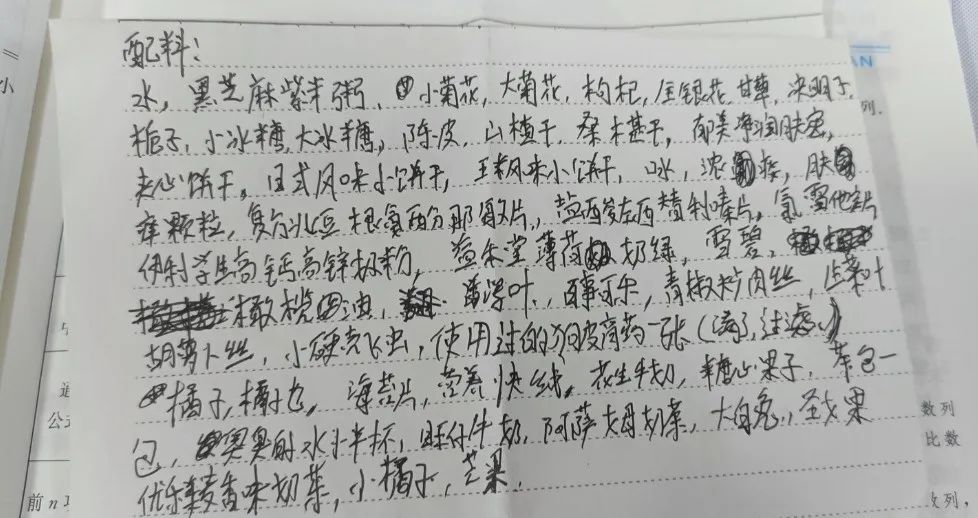 配料：
水，黑芝麻紫米粥、小菊花，大菊花，枸杞，金银花，甘草，决明子，
栀子，小冰糖，大冰糖，陈皮，山楂干，桑木甚干，郁美净润肤蜜，
夹心饼干。日式风味小饼干，玉米风味小饼干，口水，浓浆，肤
痒颗粒，复方北豆根氨酚那敏片，盐酸左西替利嗪片。氯雷他定片
伊利学生高钙高锌奶粉，益禾堂薄荷奶绿，雪碧，
橄榄油，薄荷叶，百事可乐，青椒炒肉丝，生菜叶
胡萝卜丝，小硬壳飞虫，使用过的狗皮膏药一张（没了，过滤）
橘子，橘子皮，海苔片，营养快线。花生牛奶，糖心果子，茶包一
包，奥奥的水小半杯，旺仔牛奶，阿萨姆奶茶，大白兔，圣女果
优乐美麦香味奶茶，小橘子，芒果，
小
列.
AN
公
前n
数列
比数
数列，